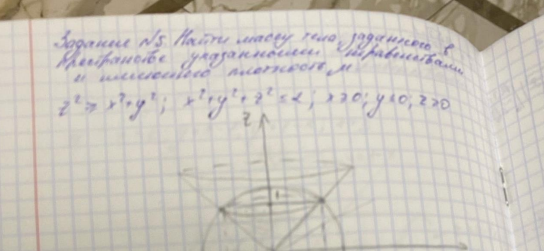 Задание №5. Найти массу тела, заданного в
пространстве указанными неравенствами
и имеющего плотность μ
z² ≥ x²+y²; x²+y²+z² ≤ 2; x≥0; y≤0; z≥0
z